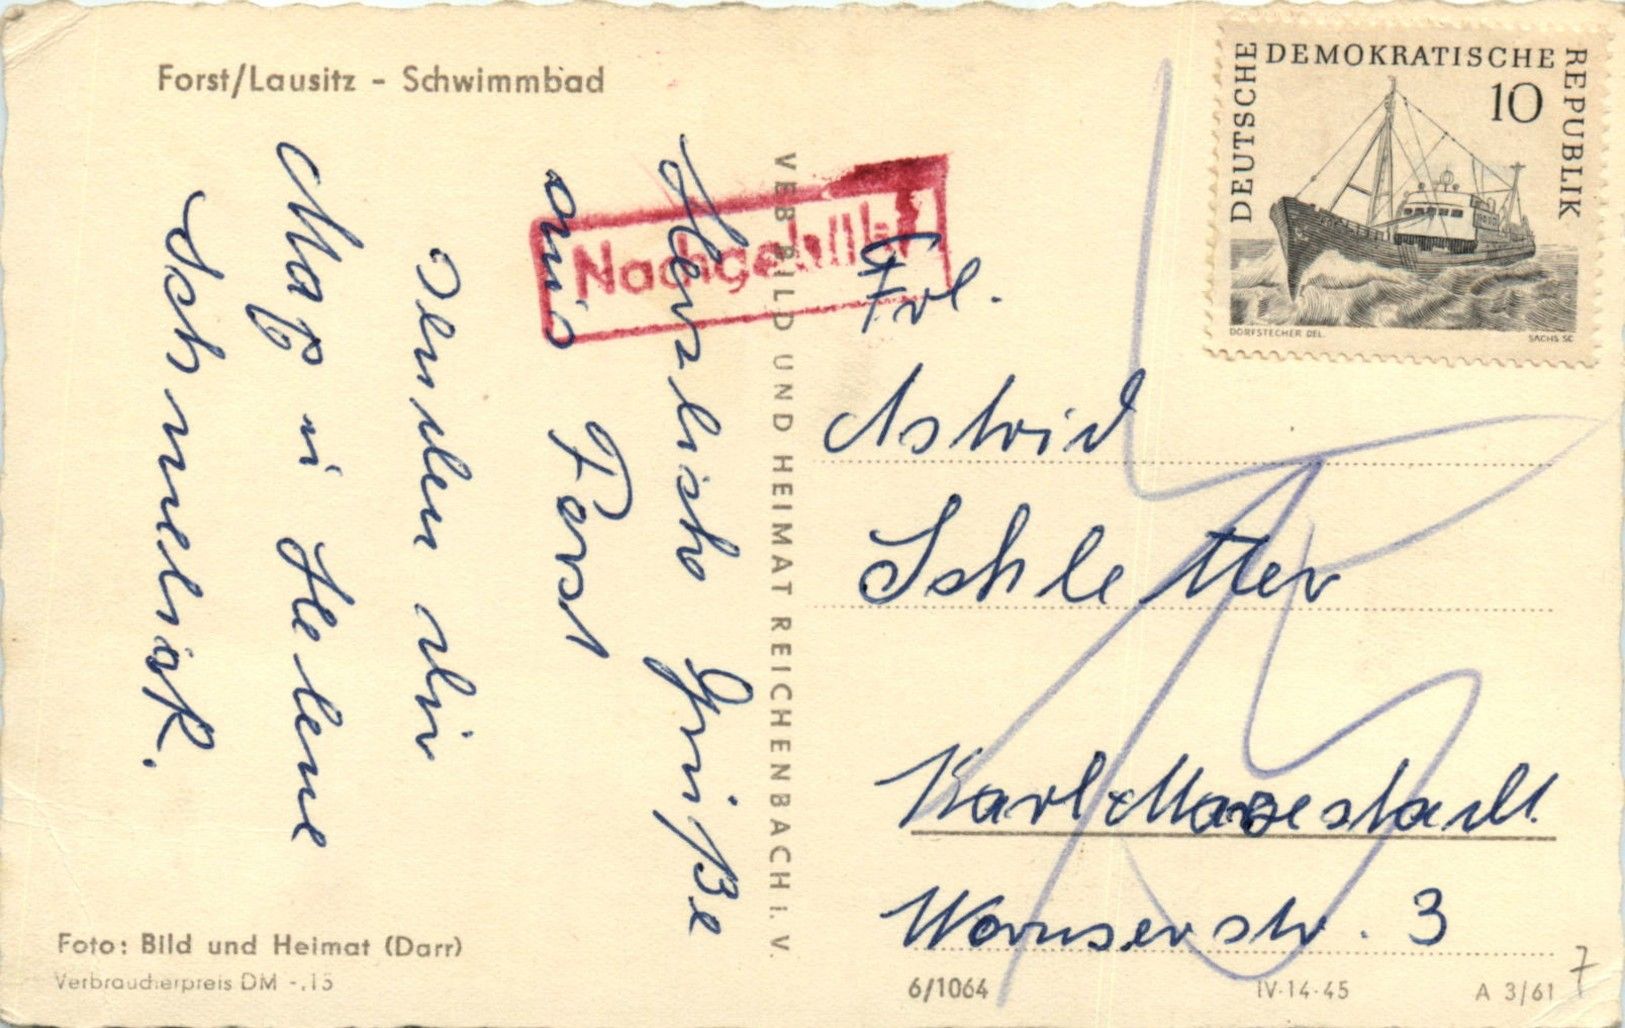 Forst/Lausitz - Schwimmbad
Herzliche Grüße
aus Forst
senden dir
Max u Helene
Schmeliak.
Nachgebühr
VEB BILD UND HEIMAT REICHENBACH i. V.
DEUTSCHE DEMOKRATISCHE REPUBLIK
10
DORFSTECHER DEL.
SACHS SC
Frl.
Astrid
Schletter
Karl-Marxstadt
str. 3
Foto: Bild und Heimat (Darr)
Verbraucherpreis DM -.15
6/1064
IV-14-45
A 3/61
7